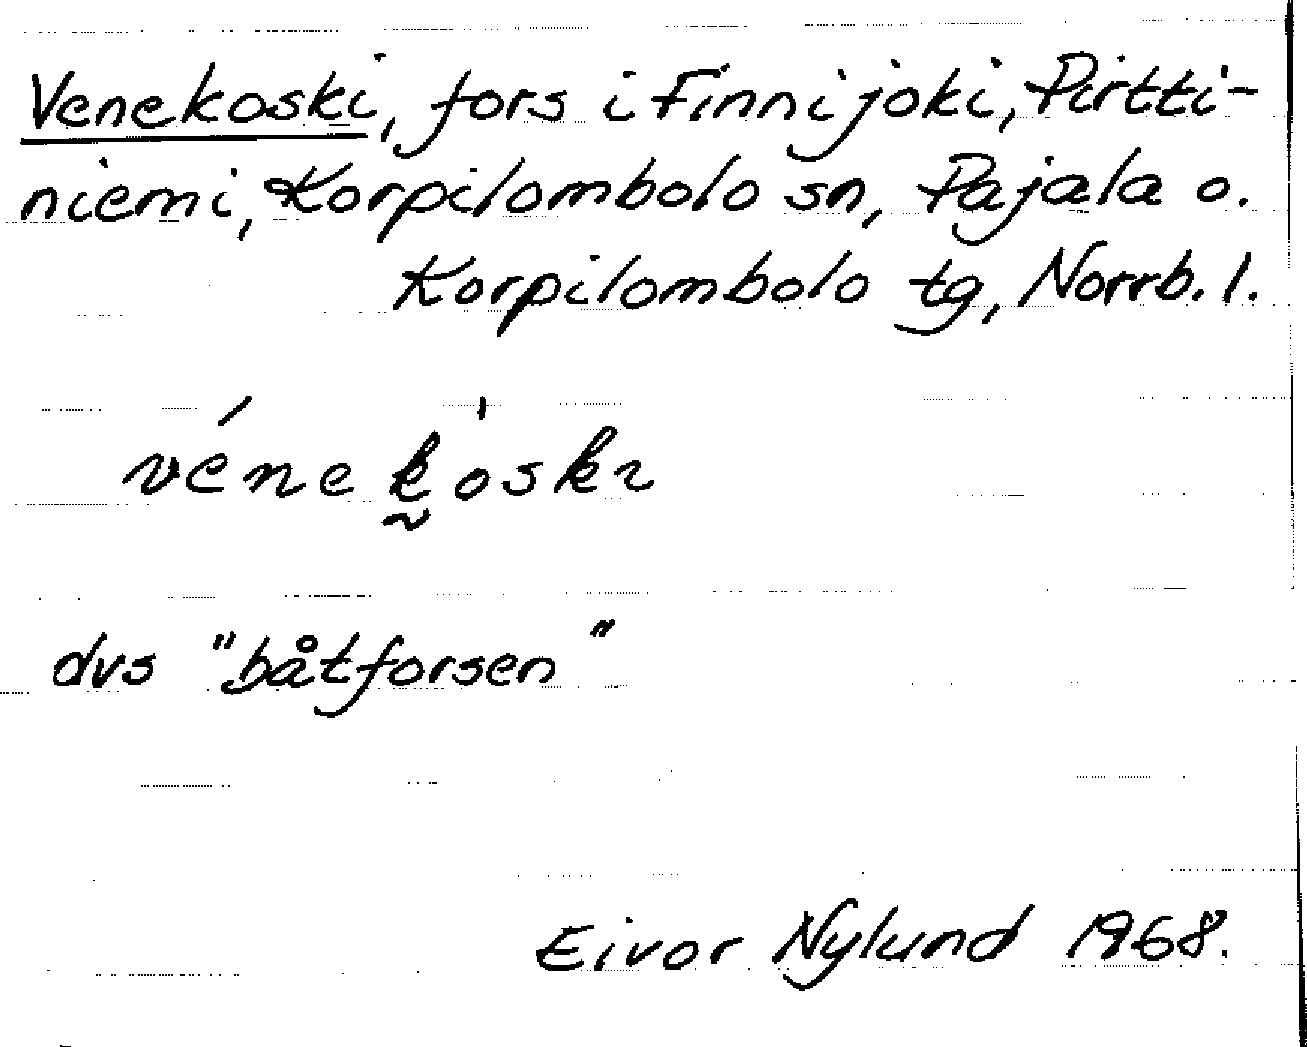 Venekoski, fors i Finnijoki, Pirtti-
niemi, Korpilombolo sn, Pajala o.
Korpilombolo tg, Norrb. l.
vének̰òski
dvs "båtforsen"
Eivor Nylund 1968.